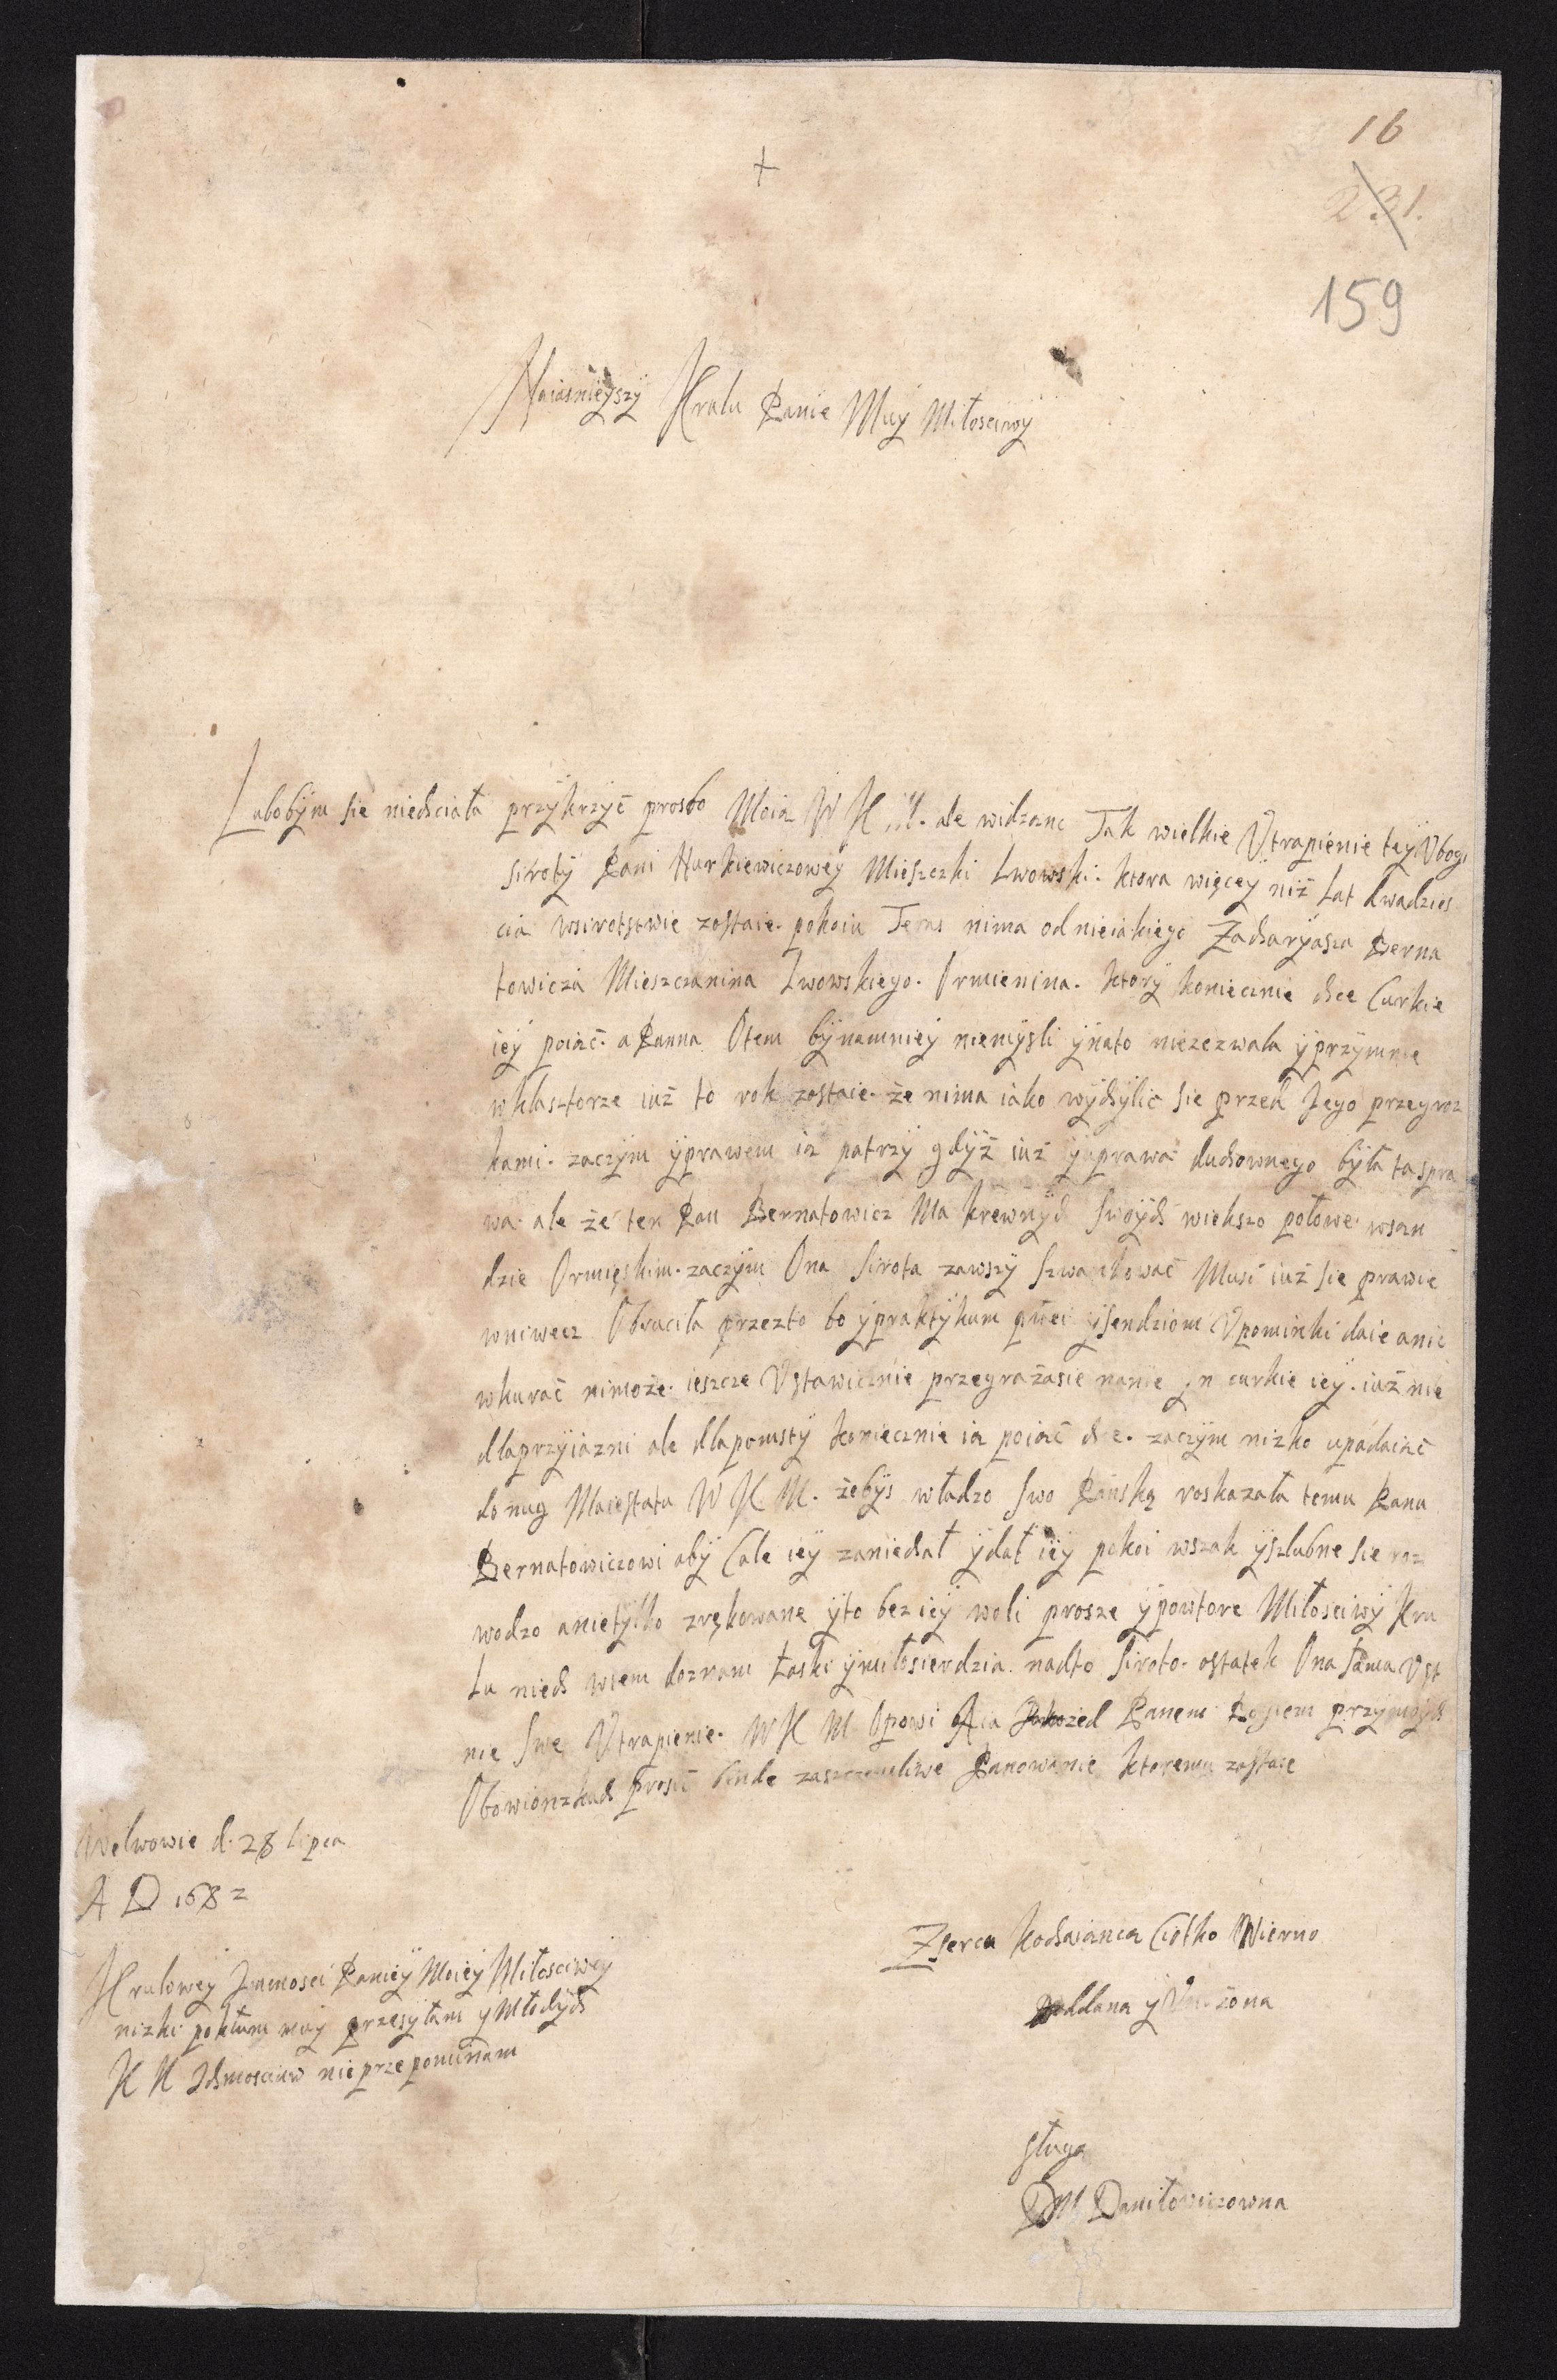 16
231.
159
+
Naiasnieyszy Kralu Panie Muy Miłosciwy
Lubobym sie niechciała przykrzyć prosbo Moia W K M. ale widzanc Tak wielkie Utrapienie tey Ubogi
siroty Pani Hurkiewiczowey Mieszczki Lwowski. ktora więcey niż Lat dwadzies
cia wsirotstwie zostaie. pokoiu Teras nima od nieiakiego Zacharyasza Berna
towicza Mieszczanina Lwowskiego. Ormienina. ktory koniecznie chce Curkie
iey poiać. a Panna Otem bynamniey niemysli ynato niezezwala y przymnie
wklasztorze iuż to rok zostaie. że nima iako wychylić sie przed Jego przegroz
kami. zaczym yprawem ia patrzy gdyż iuż yuprawa duchownego była ta spra
wa. ale że ten Pan Bernatowicz Ma krewnych swoych wiekszo połowe wsan
dzie Ormięskim. zaczym Ona sirota zawszy szwankować Musi iuż sie prawie
wniwecz Obruciła przezto bo ypraktykum płaci ysendziom Upominki daie a nic
wkurać nimoże. ieszcze Ustawicznie przegrażasie nanie yn curkie iey. iuż nie
dlaprzyiazni ale dlapomsty koniecznie ia poiać chce. zaczym nizko upadaiac
do nug Maiestatu W K M. żebys władzo swo Pańską roskazała temu Panu
Bernatowiczowi aby Cale iey zaniechał ydał iey pokoi wszak yszlubne sie roz
wodzo a nietylko zrękowane yto bez iey woli prosze ypowtore Miłosciwy Kru
Lu niech wtem doznam Łaski ymiłosierdzia nadto siroto. ostatek Ona sama Ust
nie swe Utrapienie. W K M Opowi A ia Panem Bogiem przymoych
Obowionzkach prosić bende zaszczensliwe Panowanie ktoremu zostaie
Welwowie d. 28 Lipca
A D 1682
Krulowey Jmmosci Paniey Moiey Miłosciwey
nizki pokłun muy przesyłam y Młodych
K K Ichmosciuw nie przepominam
Zserca kochaianca Ciotko Wierno
poddana y
sługa
DM Daniłowiczowna